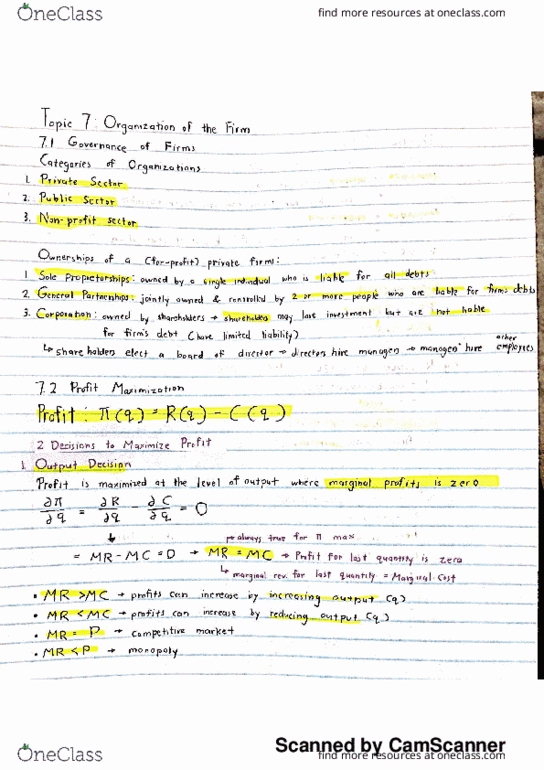 OneClass
find more resources at oneclass.com
Topic 7: Organization of the Firm
7.1 Governance of Firms
Categories of Organizations
1. Private Sector
2. Public Sector
3. Non-profit sector
Ownerships of a (for-profit) private firms:
1 Sole Proprietorships: owned by a single individual who is liable for all debts
2. General Partnerships: jointly owned & controlled by 2 or more people who are liable for firms debts
3. Corporation: owned by shareholders → shareholders may lose investment but are not liable
for firm's debt (have limited liability)
↳ share holders elect a board of director → directors hire managers → managers hire other employees
7.2 Profit Maximization
Profit: π(q) = R(q) - C(q)
2 Decisions to Maximize Profit
1. Output Decision
Profit is maximized at the level of output where marginal profits is zero
∂π/∂q = ∂R/∂q - ∂C/∂q = 0
↓ → always true for π max
= MR - MC = 0 → MR = MC → Profit for last quantity is zero
↳ marginal rev. for last quantity = Marginal Cost
• MR > MC → profits can increase by increasing output (q)
• MR < MC → profits can increase by reducing output (q)
• MR = P → competitive market
• MR < P → monopoly
Scanned by CamScanner
OneClass
find more resources at oneclass.com